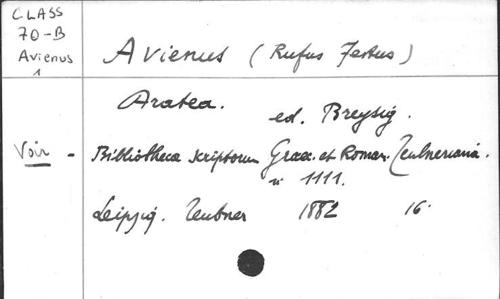 CLASS
70-B
Avienus
1
Avienus (Rufus Festus)
Aratea.
ed. Breysig.
Voir - Bibliotheca scriptorum Graec. et Roman. Teubneriana.
n° 1111.
Leipzig. Teubner 1882 16°